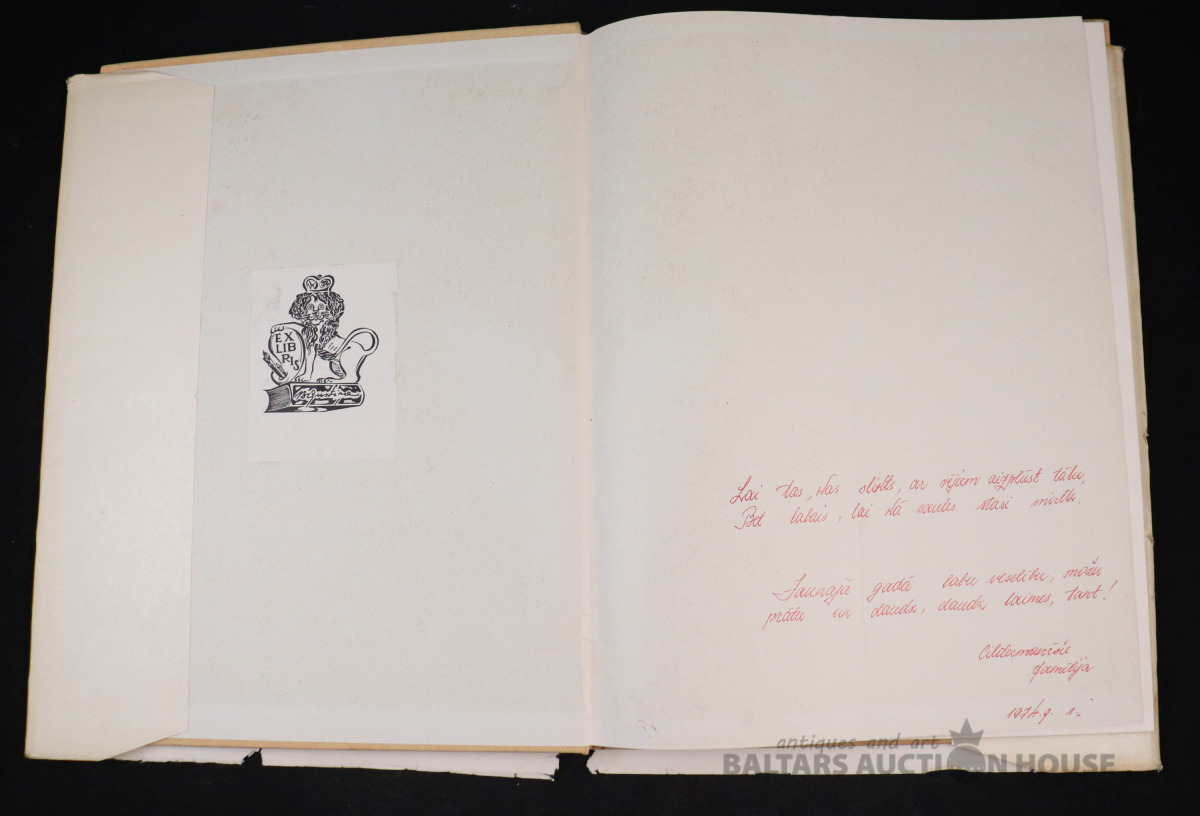 EX
LIB
RIS
Lai tas, kas slikts, ar vējiem aizplūst tālu,
Bet labais, lai kā saules stari mirdz.
Jaunajā gadā labu veselību, možu
prātu un daudz, daudz laimes, tant!
ģimilija
1974.g. 1.
antiques and art
BALTARS AUCTION HOUSE